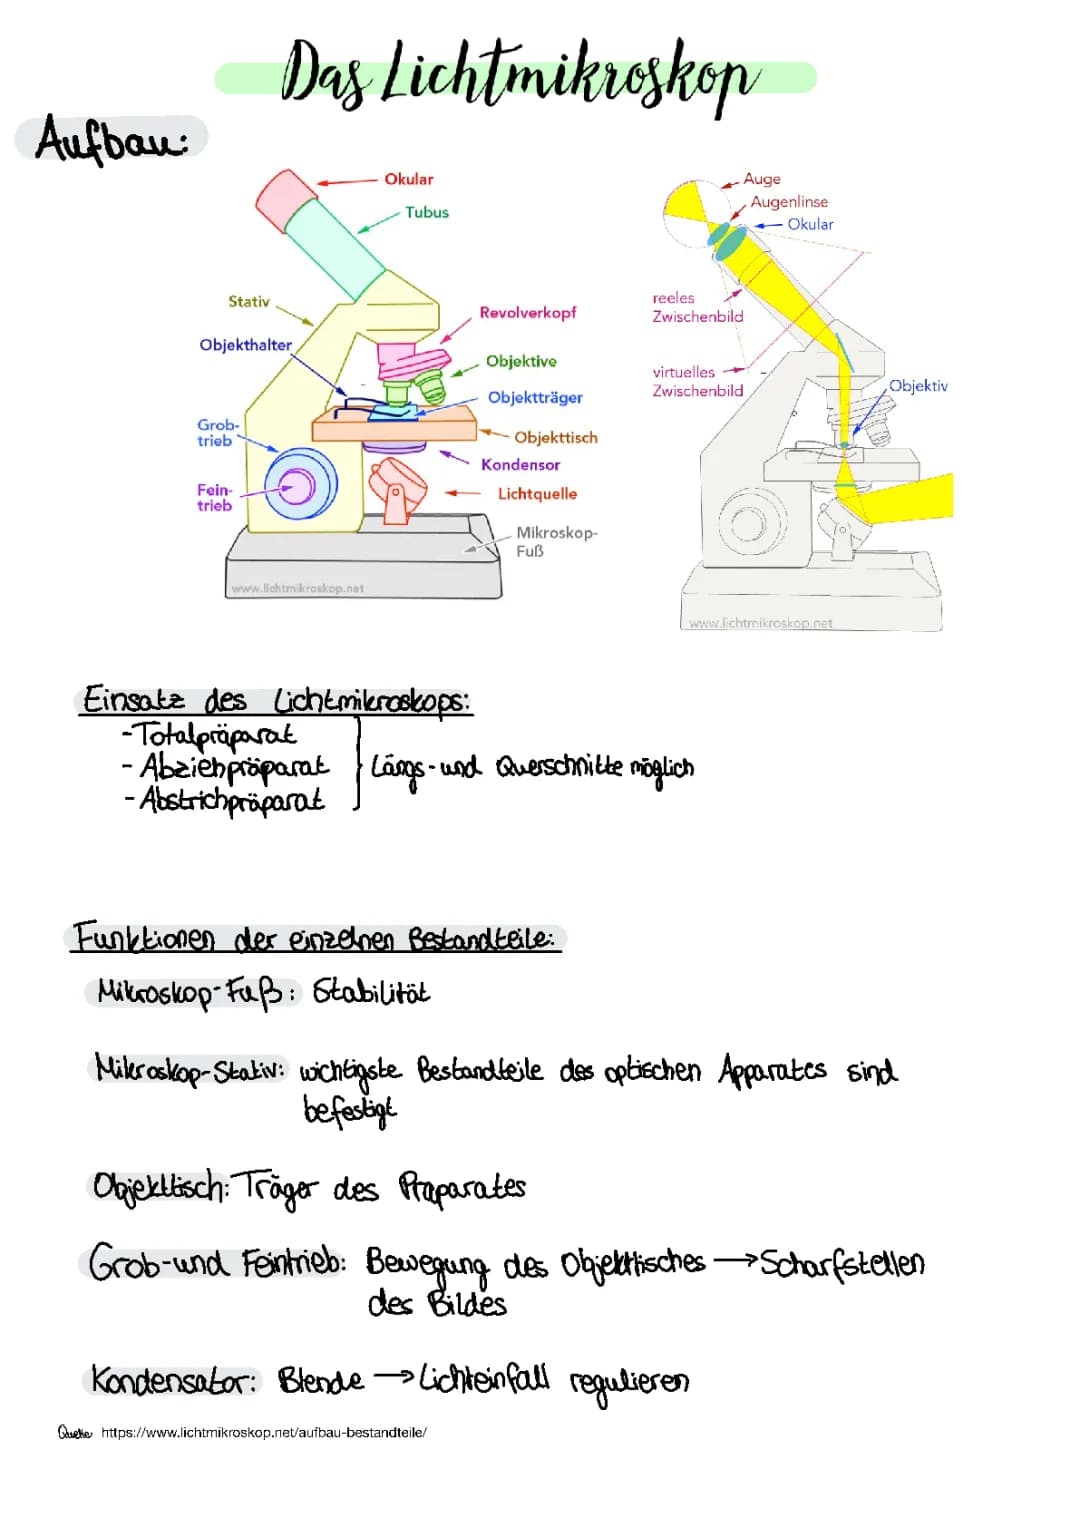 Das Lichtmikroskop
Aufbau:
Okular
Tubus
Stativ
Objekthalter
Revolverkopf
Objektive
Objektträger
Grob-
trieb
Objekttisch
Kondensor
Fein-
trieb
Lichtquelle
Mikroskop-
Fuß
www.lichtmikroskop.net
Auge
Augenlinse
Okular
reeles
Zwischenbild
virtuelles
Zwischenbild
Objektiv
www.lichtmikroskop.net
Einsatz des Lichtmikroskops:
-Totalpräparat
- Abziehpräparat
- Abstrichpräparat
Längs- und Querschnitte möglich
Funktionen der einzelnen Bestandteile:
Mikroskop-Fuß: Stabilität
Mikroskop-Stativ: wichtigste Bestandteile des optischen Apparates sind
befestigt
Objekttisch: Träger des Präparates
Grob-und Feintrieb: Bewegung des Objekttisches → Scharfstellen
des Bildes
Kondensator: Blende → Lichteinfall regulieren
Quelle https://www.lichtmikroskop.net/aufbau-bestandteile/